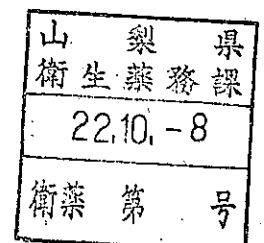 山梨県
衛生薬務課
22.10.-8
衛薬 第 号